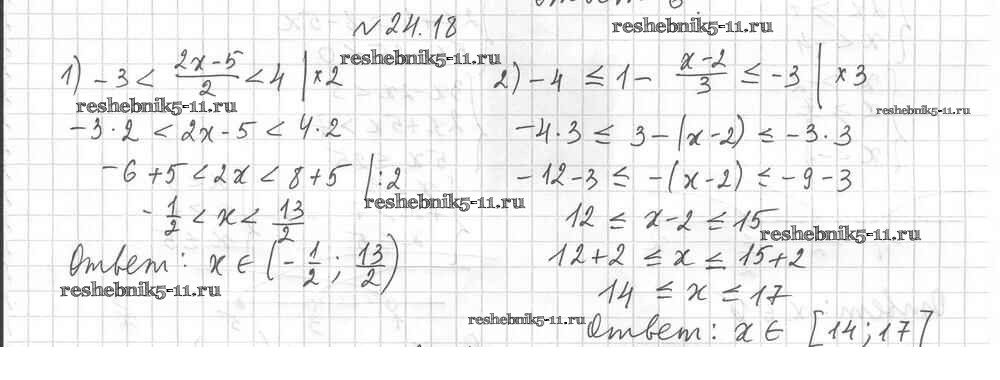 № 24.18
reshebnik5-11.ru
reshebnik5-11.ru
1) -3 < (2x-5)/2 < 4 | ×2
reshebnik5-11.ru
-3·2 < 2x-5 < 4·2
-6+5 < 2x < 8+5 | :2
reshebnik5-11.ru
-1/2 < x < 13/2
Ответ: x ∈ (-1/2; 13/2)
reshebnik5-11.ru
2) -4 ≤ 1 - (x-2)/3 ≤ -3 | ×3
reshebnik5-11.ru
-4·3 ≤ 3-(x-2) ≤ -3·3
-12-3 ≤ -(x-2) ≤ -9-3
12 ≤ x-2 ≤ 15
reshebnik5-11.ru
12+2 ≤ x ≤ 15+2
14 ≤ x ≤ 17
reshebnik5-11.ru
Ответ: x ∈ [14; 17]